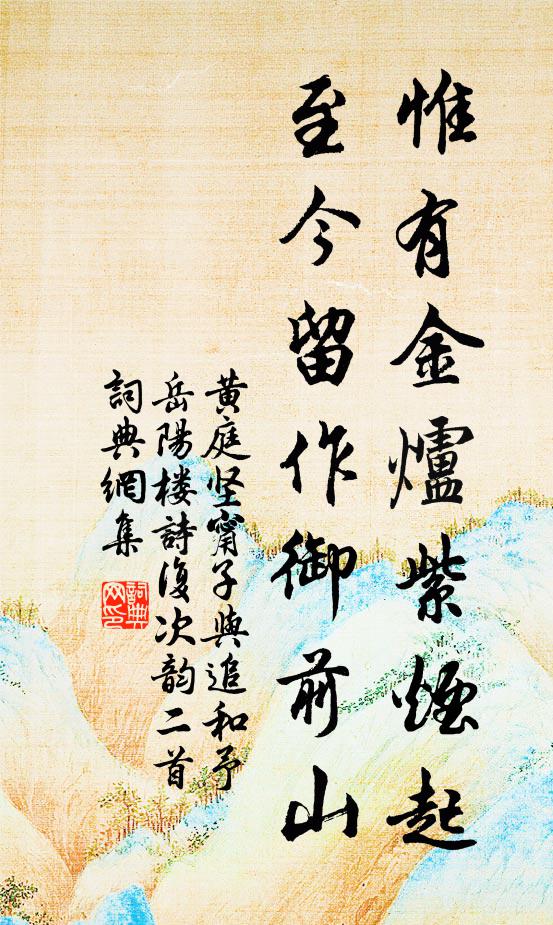 惟有金爐紫煙起
至今留作御前山
黄庭坚甯子與追和予
岳陽楼詩復次韵二首
詞典網集
詞典
网印